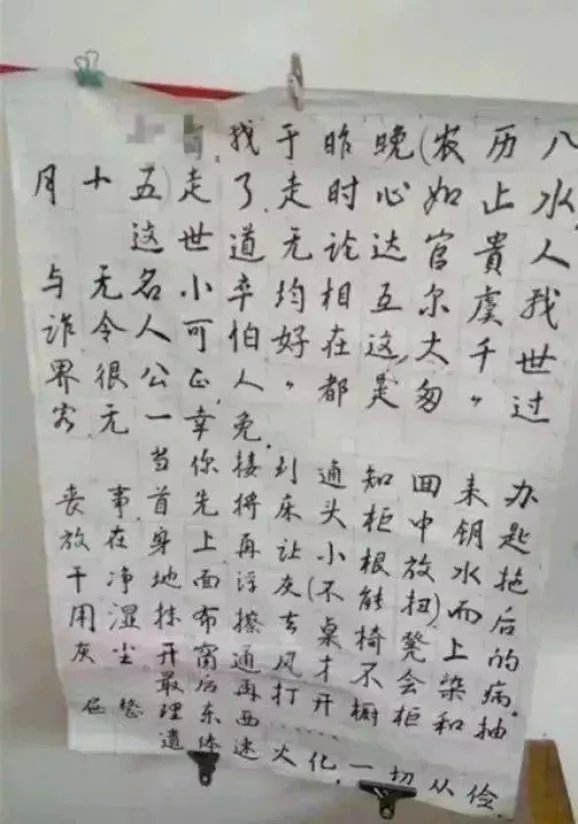 我于昨晚(农历八
月十五)走了.走时心如止水,
这世道无论达官貴人
与无名小卒均相互尔虞我
诈令人可怕好在这大千世
界很公正,人〃都是匆〃过
客,无一幸免.
当你接到通知回来办
丧事首先将床头柜中钥匙
放在身上再让小根放水拖
干净地面浮灰(不能扭)而后
用湿抹布擦去桌椅凳上的
灰尘开窗通风才不会染病.
最后再打开橱柜和抽
屉整理东西……
遗体速火化,一切从俭.